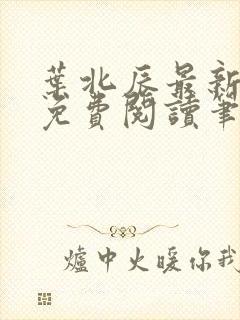 葉北辰最新
免費閱讀筆
爐中火暖你我